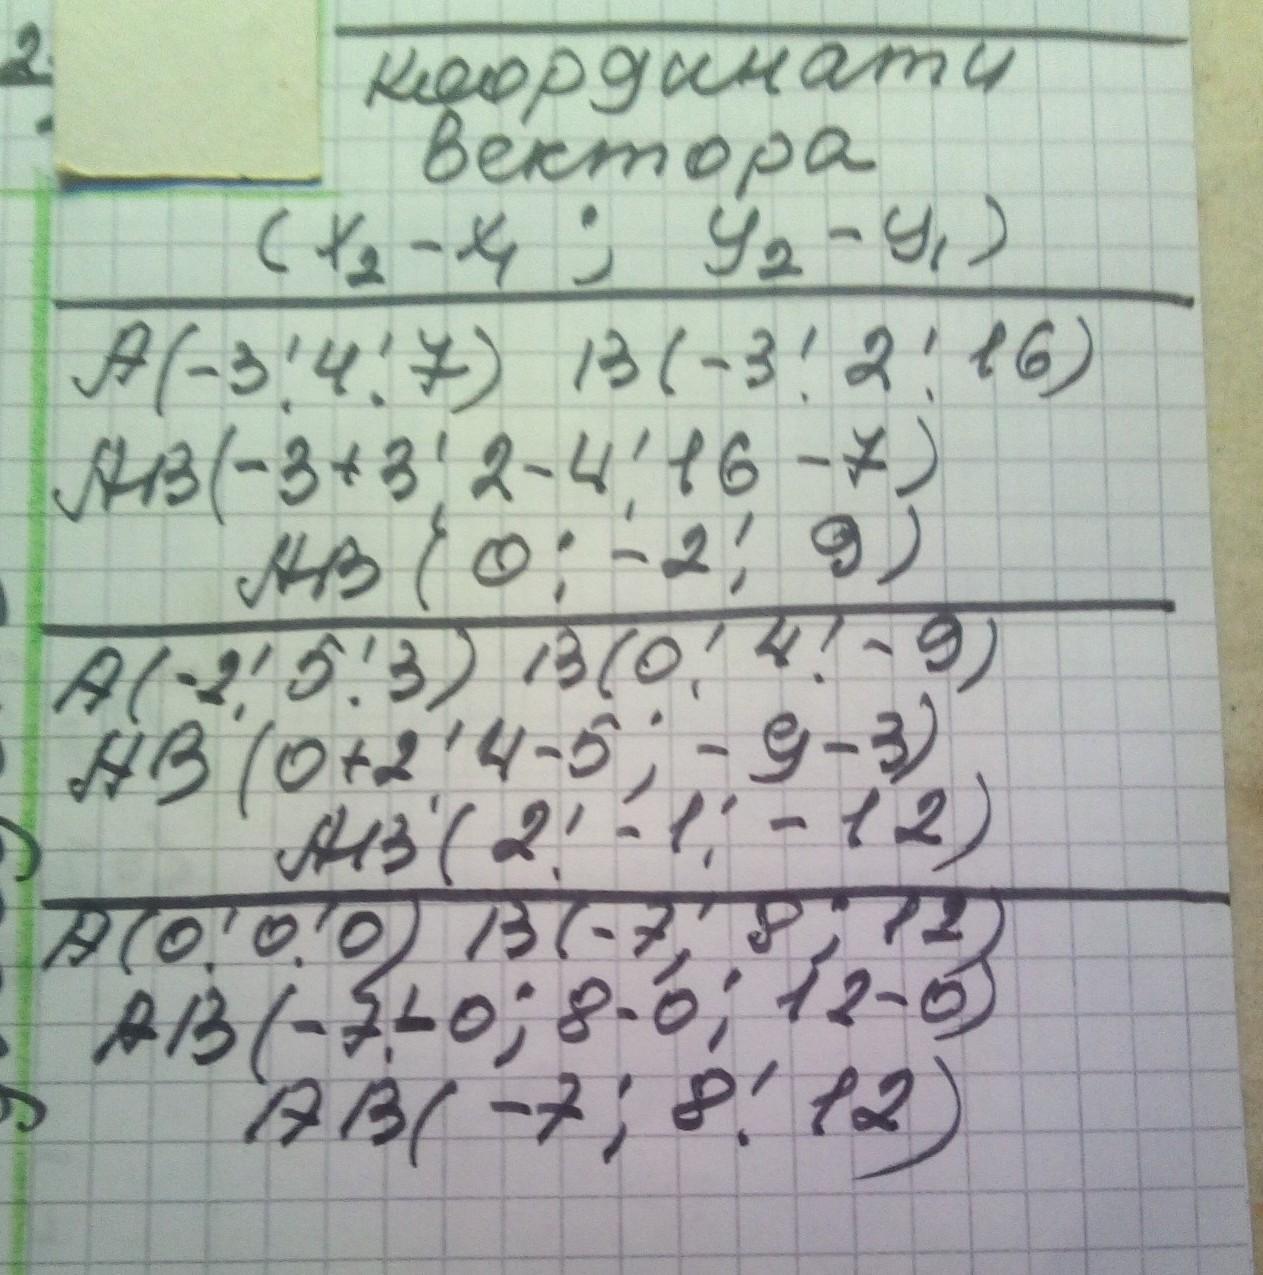 2.
координати
вектора
(x₂ - x₁ ; y₂ - y₁)
A(-3; 4; 7) B(-3; 2; 16)
AB(-3+3; 2-4; 16-7)
AB(0; -2; 9)
A(-2; 5; 3) B(0; 4; -9)
AB(0+2; 4-5; -9-3)
AB(2; -1; -12)
A(0; 0; 0) B(-7; 8; 12)
AB(-7-0; 8-0; 12-0)
AB(-7; 8; 12)